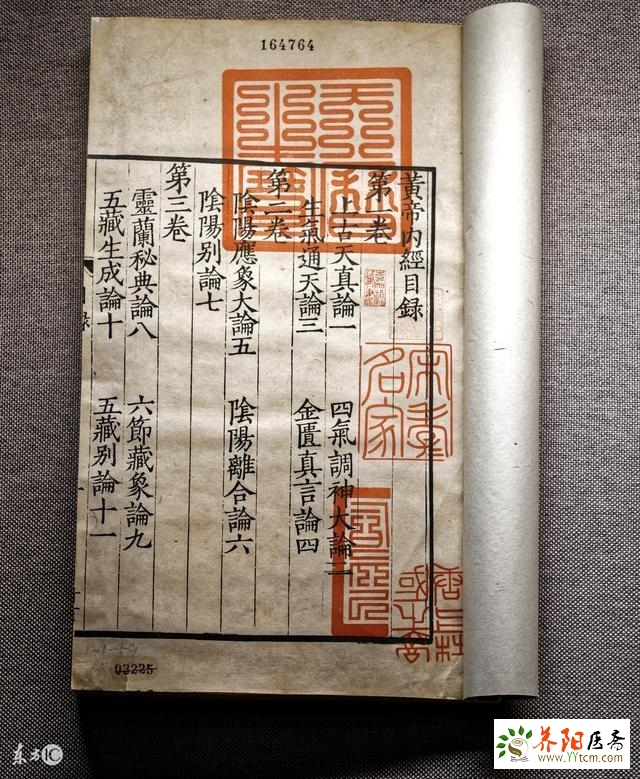 164764
黃帝内經目録
第一卷
上古天真論一 四氣調神大論二
生氣通天論三 金匱真言論四
第二卷
陰陽應象大論五 陰陽離合論六
陰陽别論七
第三卷
靈蘭秘典論八 六節藏象論九
五藏生成論十 五藏别論十一
03225
东方IC
养阳医斋
www.YYtcm.com